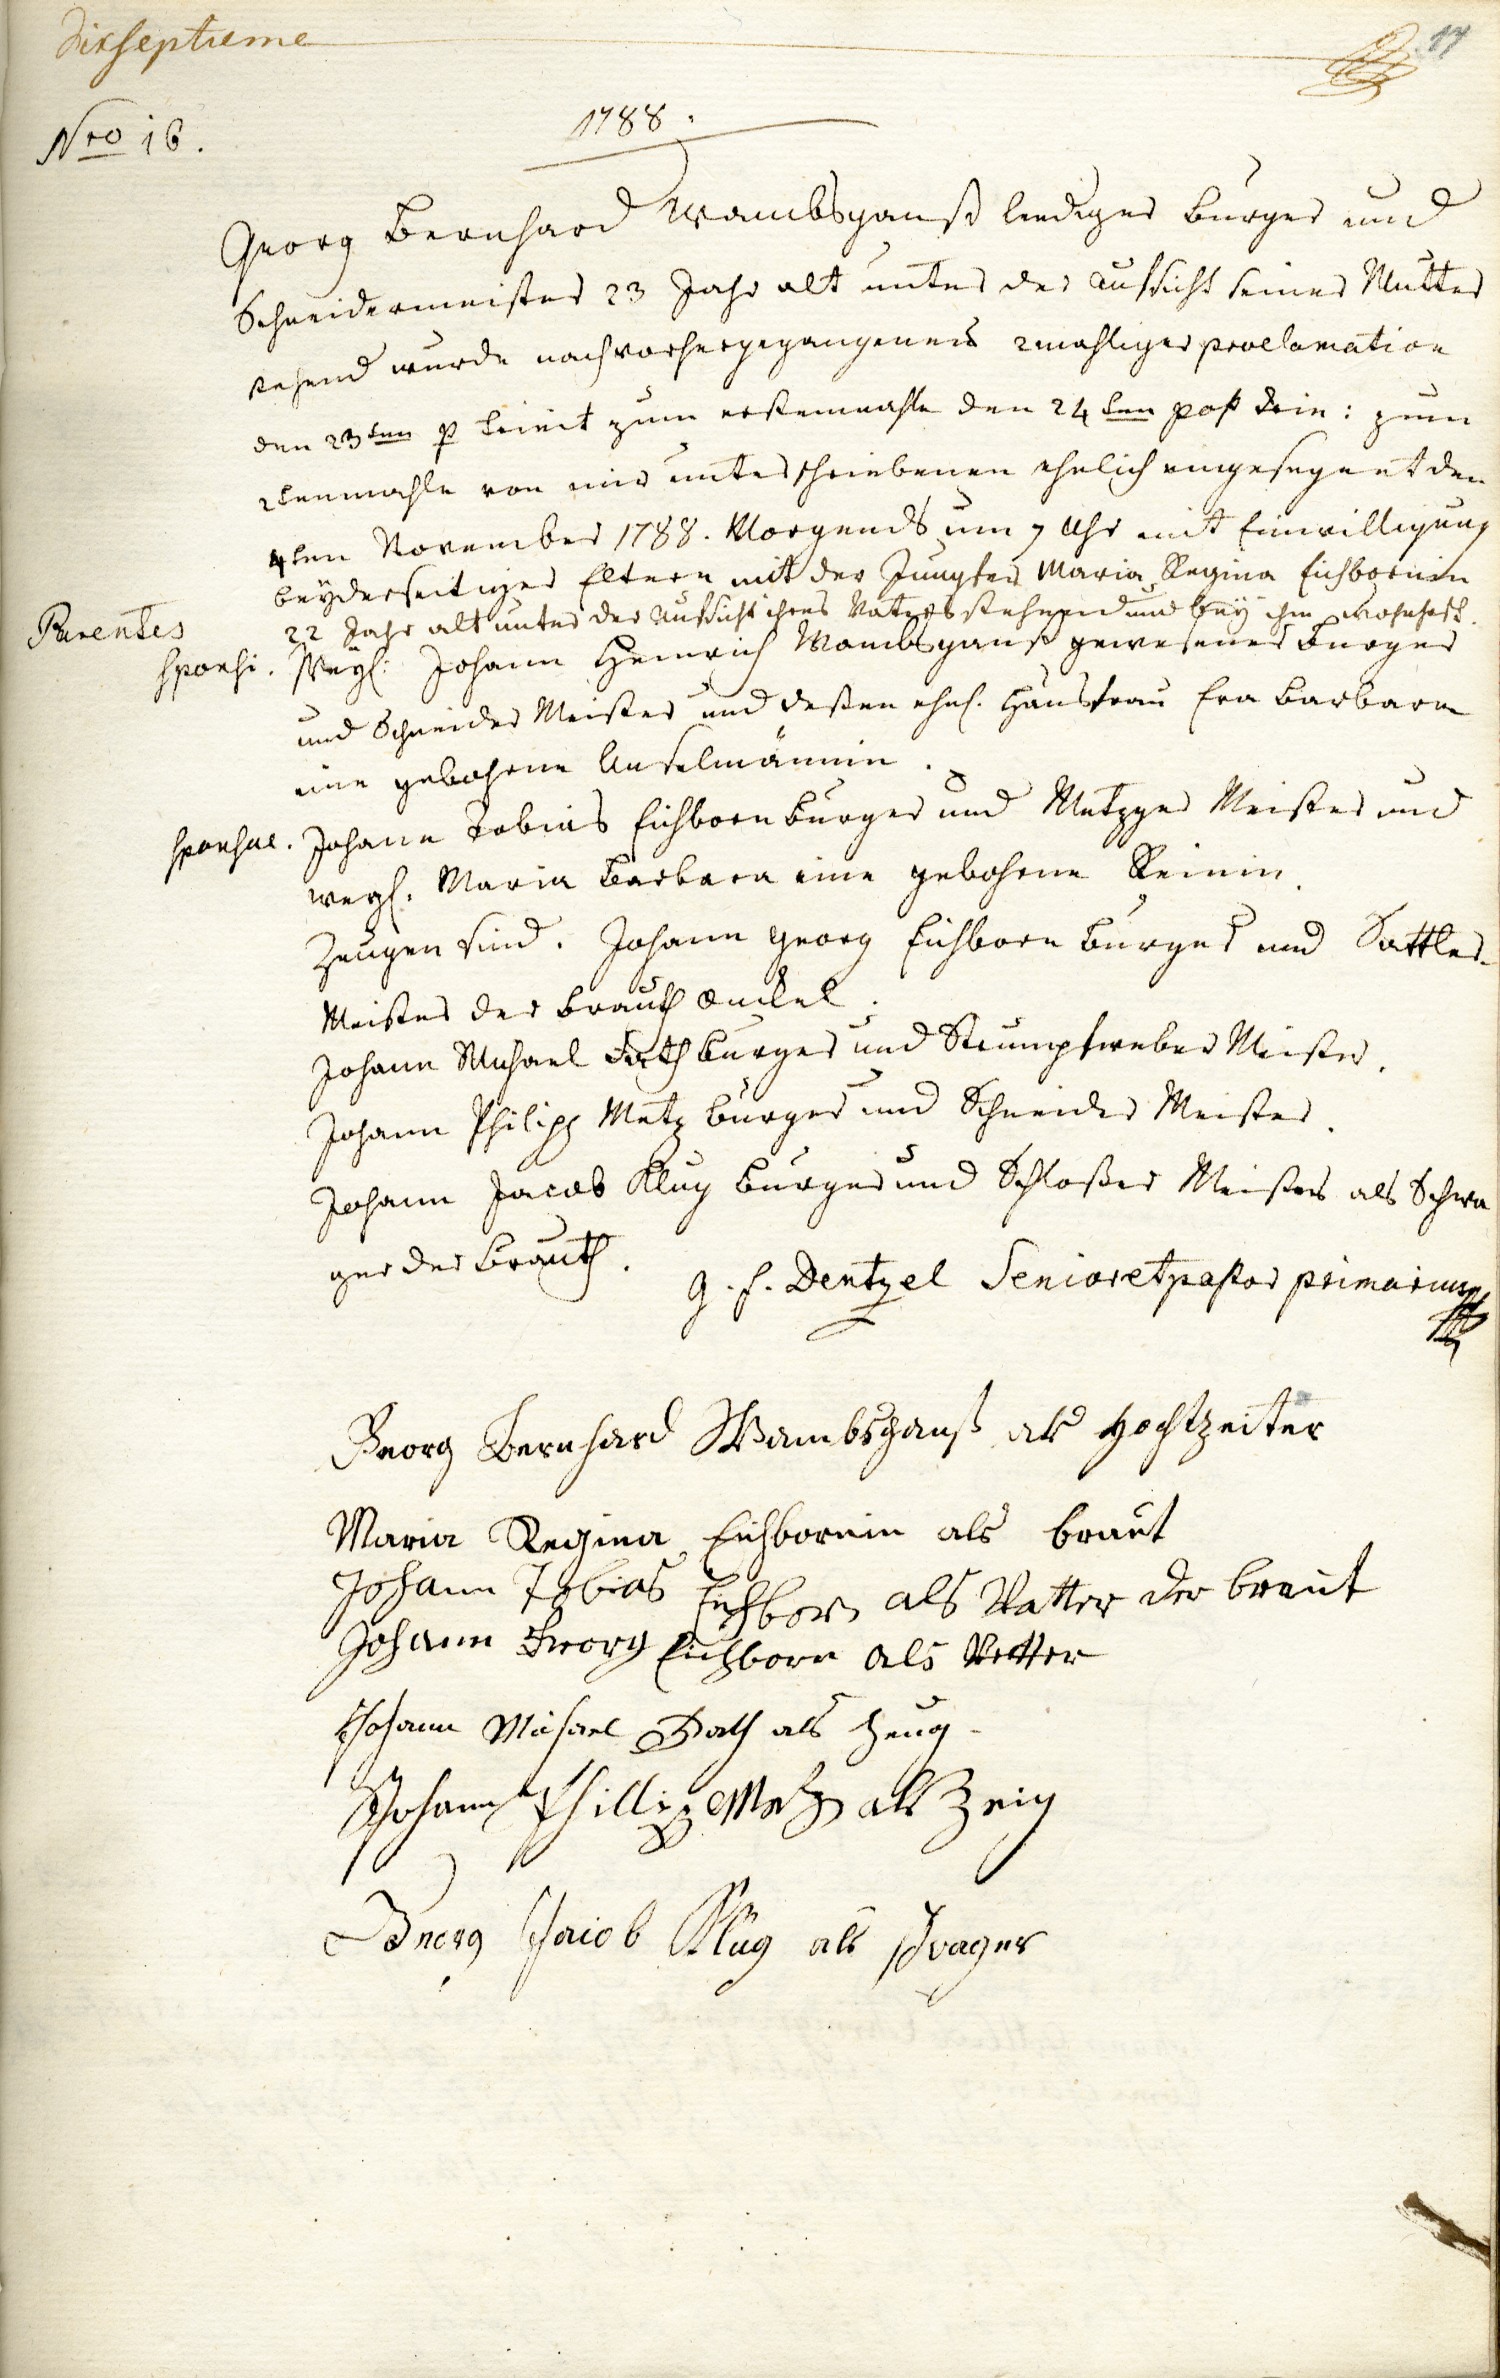 dixseptieme
17
Nro 16.
1788.
Georg Bernhard Wambsganß lediger Burger und
Schneidermeister 23 Jahr alt unter der Aufsicht seiner Mutter
stehend wurde nach vorhergegangener 2mahliger proclamation
den 23ten p trinit zum erstenmahle den 24ten post trin: zum
2tenmahle von mir unterschriebenen ehelich eingesegnet den
4ten November 1788. Morgends um 7 Uhr mit Einwilligung
beyderseitiger Eltern mit der Jungfer Maria Regina Eichbornin
22 Jahr alt unter der Aufsicht ihres Vatters stehend und bey ihm wohnhaft.
Parentes
sponsi. Weyl: Johann Heinrich Wambsganß gewesener Burger
und Schneider Meister und deßen ehel. Hausfrau Eva Barbara
eine gebohrne Anselmännin.
sponsae. Johann Tobias Eichborn Burger und Metzger Meister und
weyl. Maria Barbara eine gebohrne Reinin.
Zeugen sind. Johann Georg Eichborn Burger und Sattler-
Meister der Brauth Onckel.
Johann Michael Burger und Strumpfweber Meister.
Johann Philipp Metz Burger und Schneider Meister.
Johann Jacob Klug Burger und Schloßer Meister als Schwa
ger der Brauth.
G. F. Dentzel Senior et pastor primarius
Georg Bernhard Wambsganß als Hochtzeiter
Maria Regina Eichbornin als braut
Johann Tobias Eichborn als Vatter der braut
Johann Georg Eichborn als Vetter
Johann Michael als Zeug
Johann Phillip Metz als Zeig
Georg Jacob Klug als Schwager